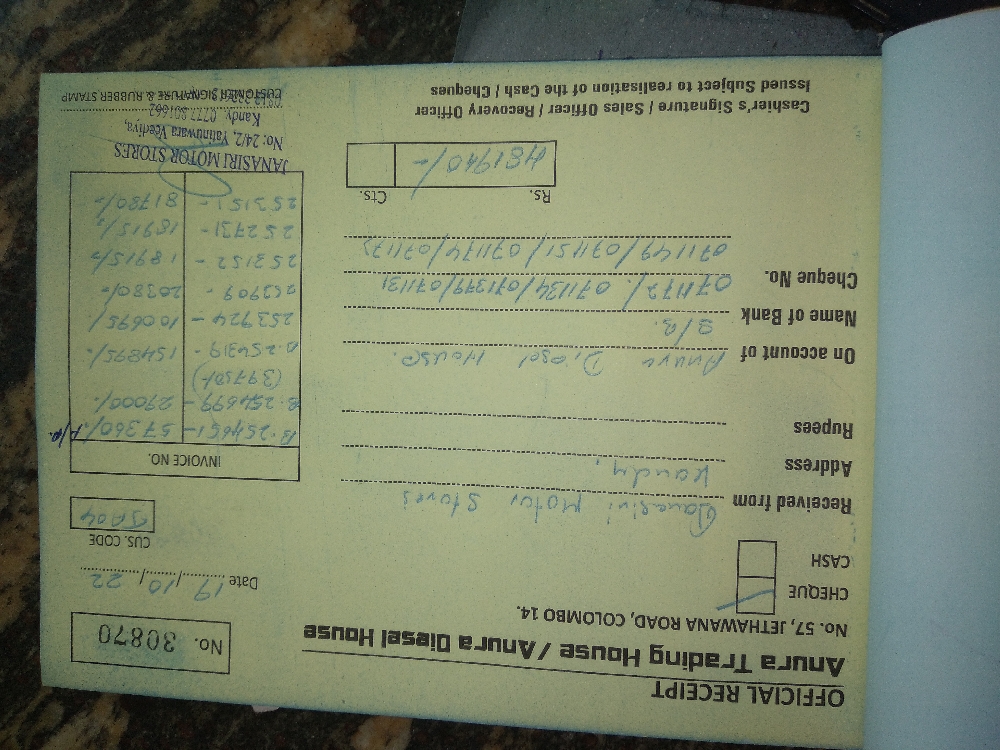 OFFICIAL RECEIPT
Anura Trading House / Anura Diesel House
No. 57, JETHAWANA ROAD, COLOMBO 14.
No. 30870
CHEQUE
CASH
Date 19/10/22
CUS. CODE
JA04
Received from Janasiri Motor Stores
Address Kandy,
Rupees
On account of Anura Diesel House.
Name of Bank
Cheque No. 071172/ 071134/071399/07113
071149/071151/071174/07117
Rs. Cts.
481940/-
INVOICE NO.
B.254651- 57360/.
B.254699- 29000/.
(39750/-)
B.254319- 154895/.
253924- 100695/.
253909- 20380/-
253152- 18915/-
252731- 18915/-
253151- 81780/-
JANASIRI MOTOR STORES
No: 24/2, Yatinuwara Veediya,
Kandy. 0777 801662
CUSTOMER SIGNATURE & RUBBER STAMP
Cashier's Signature / Sales Officer / Recovery Officer
Issued Subject to realisation of the Cash / Cheques